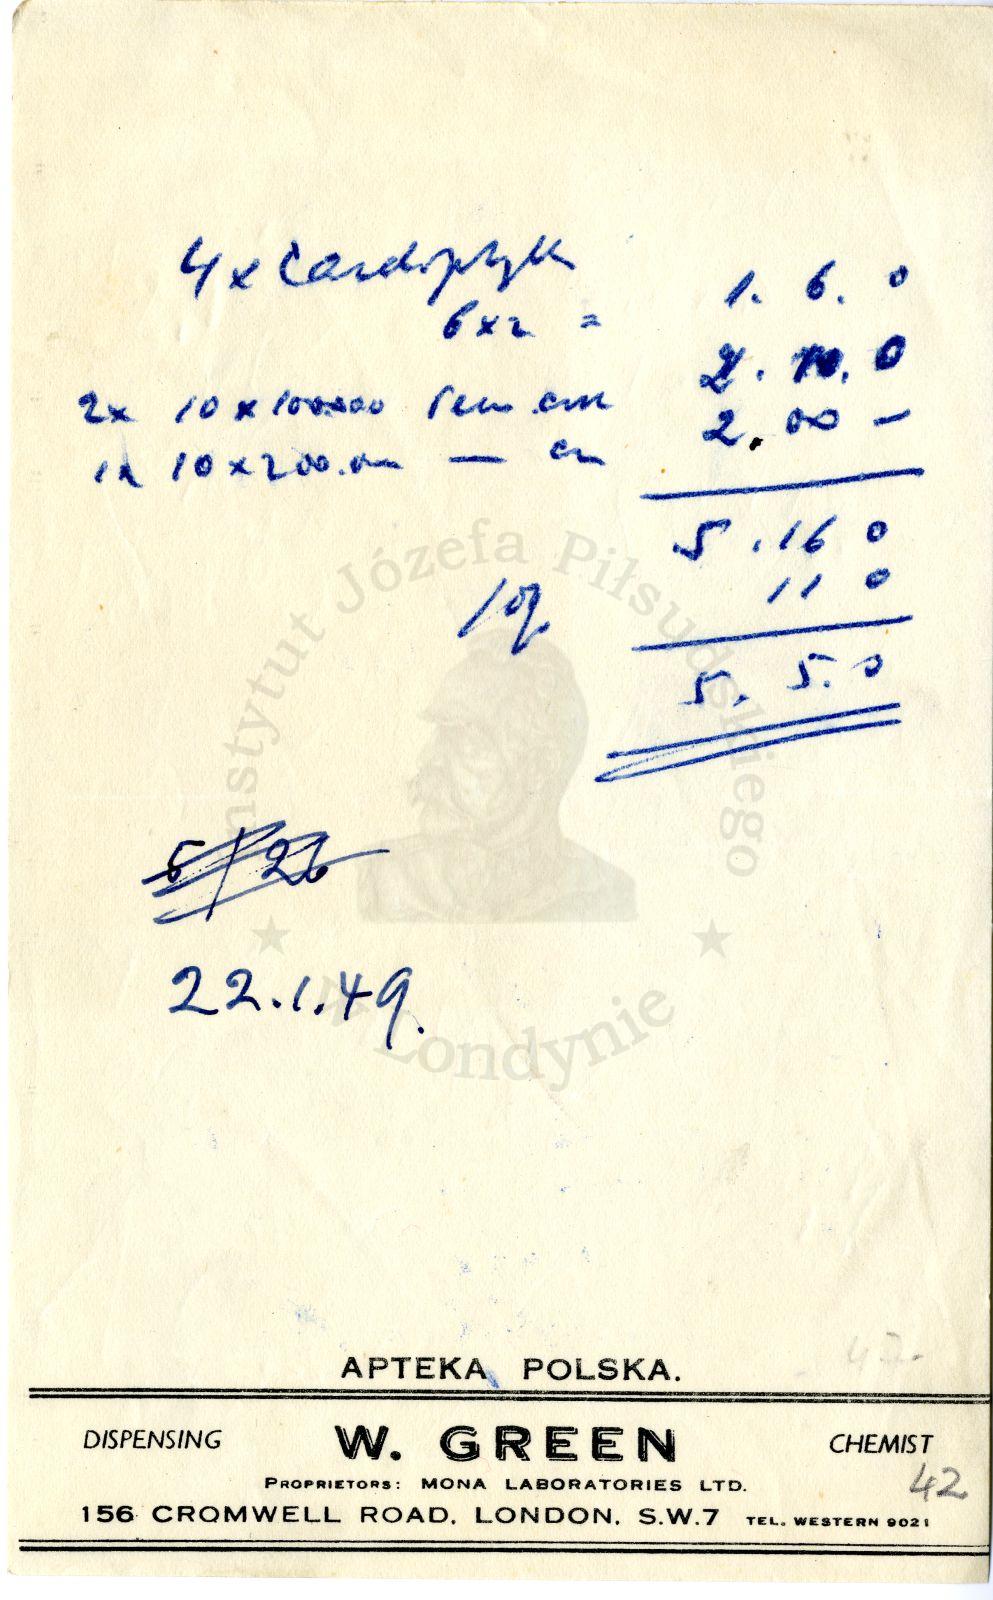 4 x
6 x 2 = 1. 6. 0
2. 10. 0
2x 10 x 100.000
2. 00 —
1x 10 x 200.000 —
5. 16 0
11 0
5. 5. 0
5 / 26
22.1.49.
Instytut Józefa Piłsudskiego
w Londynie
47
APTEKA POLSKA.
DISPENSING W. GREEN CHEMIST
PROPRIETORS: MONA LABORATORIES LTD.
42
156 CROMWELL ROAD, LONDON, S.W.7 TEL. WESTERN 9021